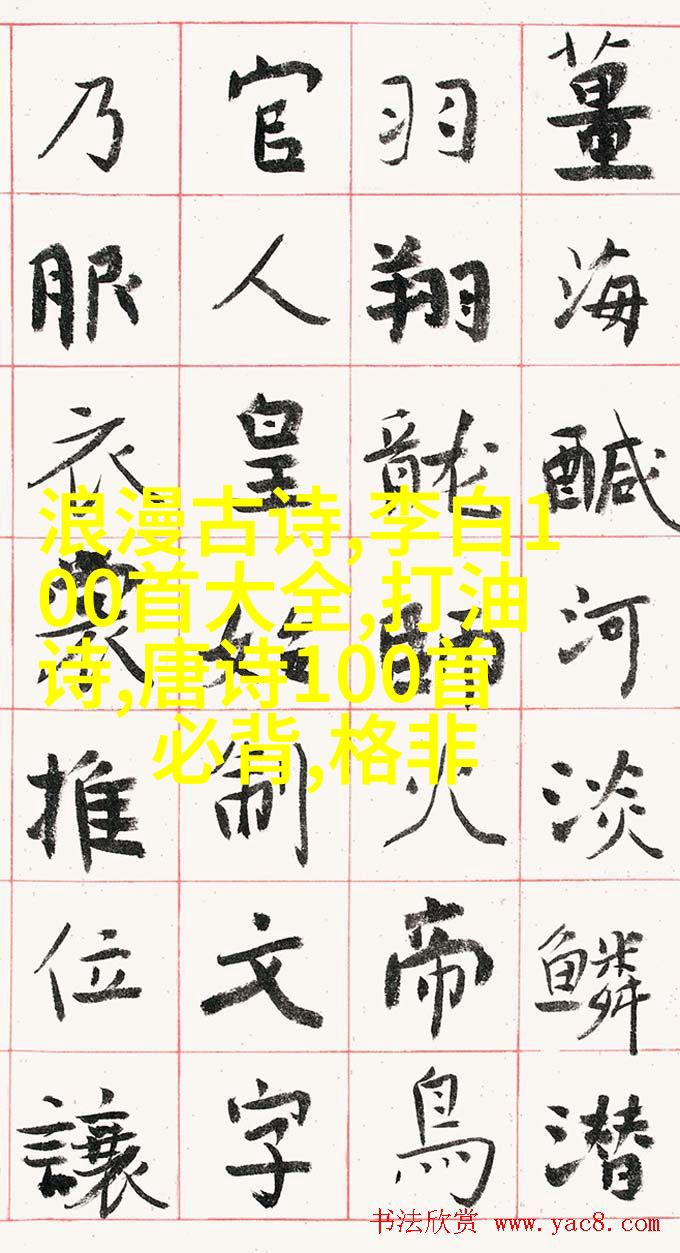 薑海醎河淡鱗潜
羽翔龍師火帝鳥
官人皇始制文字
乃服衣裳推位讓
浪漫古诗,李白1
00首大全,打油
诗,唐诗100首
必背,格非
书法欣赏 www.yac8.com